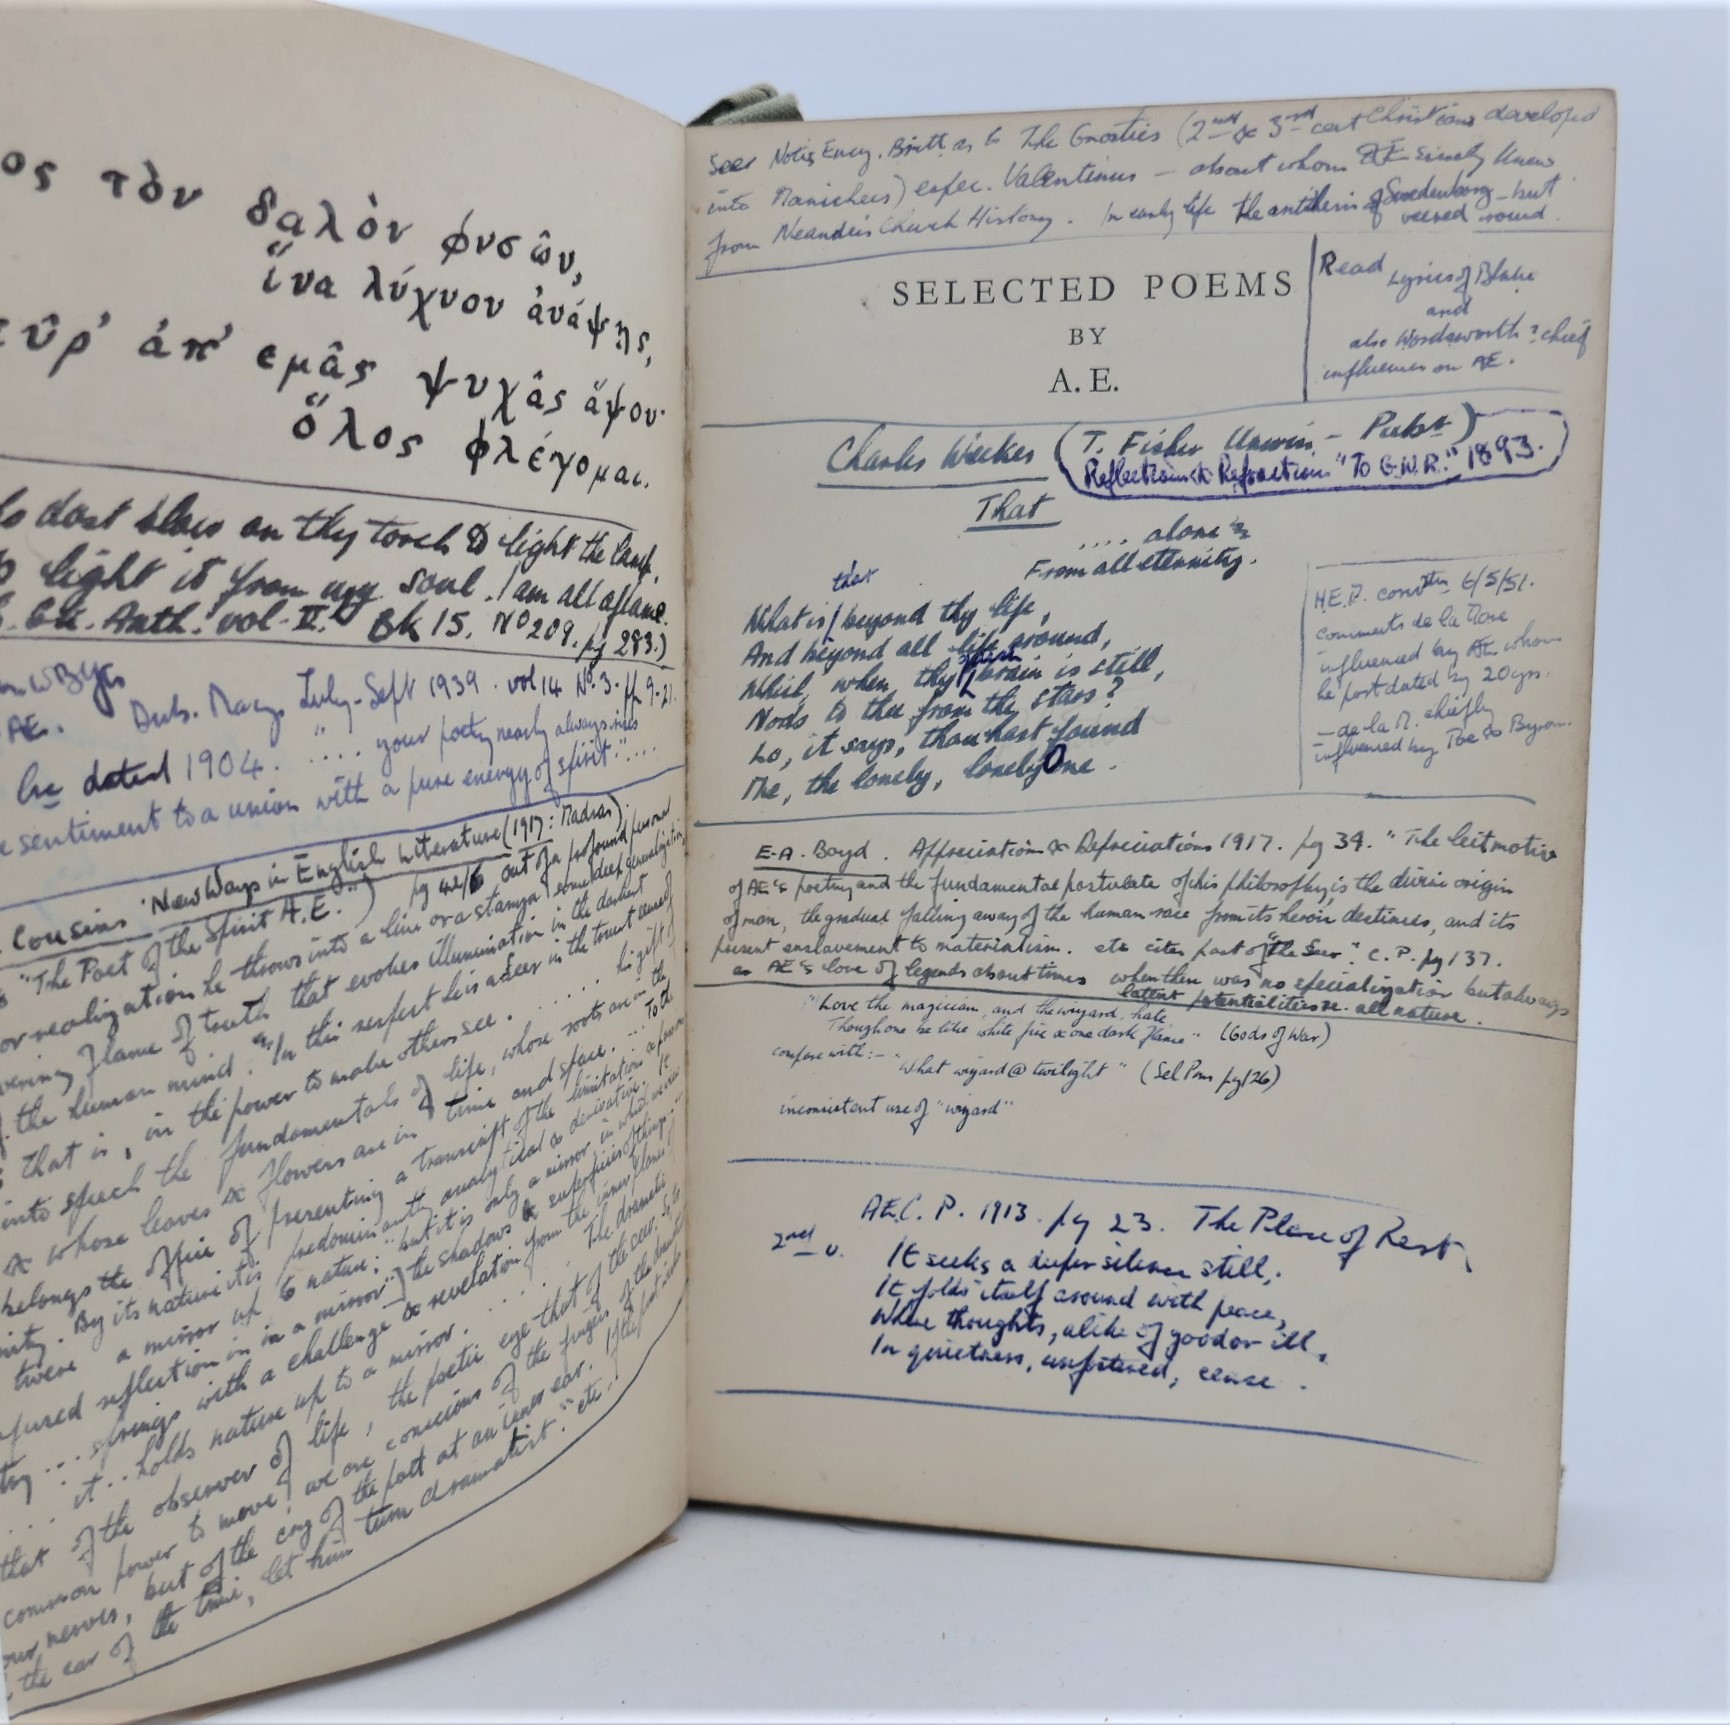 ος τὸν δαλὸν φυσῶν,
ἵνα λύχνον ἀνάψῃς,
εῦρ' ἀπ' εμᾶς ψυχᾶς ἅψου·
ὅλος φλέγομαι.
dost blow on thy torch to light the lamp,
light it from my soul. I am all aflame.
Gk. Anth. vol. II. Bk 15. No 209. pg 283.)
WBYeats
AE. Dub. Mag. July-Sept 1939. vol 14 No. 3. pp 9-21.
dated 1904. .... your poetry nearly always
sentiment to a union with a pure energy of spirit." ....
Cousins 'New Ways in English Literature (1917: Madras).
"The Poet of the Spirit A.E.") pg out of a profound personal
or realization he throws into a line or a stanza some deep generalization
flame of truth that evokes illumination in the darkest
the human mind. In this respect he is a seer in the truest sense of
that is, in the power to make others see. ..... his gift of
into speech the fundamentals of life, whose roots are in the
& whose leaves & flowers are in time and space. ... To the
belongs the office of presenting a transcript of the limitations
By its nature it is predominantly analytical & derivative. It
twere a mirror up to nature; but it is only a mirror in which we see
reflection in in a mirror") the shadows & superficies of things ...
.... springs with a challenge & revelation from the inner planes
it... holds nature up to a mirror. ..... The dramatic
that of the observer of life, the poetic eye that of the seer. So, to
common power to move, we are conscious of the fingers of the dramatist
our nerves, but of the cry of the poet at an inner ear. If the poet seeks
the ear of the time, let him turn dramatist." etc.
Seer Notis Ency. Britt. as to The Gnostics (2nd & 3rd cent Christians developed
into Manichees) espec. Valentinus — about whom AE surely knew
from Neander's Church History. In early life the antithesis of Swedenborg - but
veered round.
SELECTED POEMS
BY
A. E.
Read
Lyrics of Blake
and
also Wordsworth ? chief
influences on AE.
Charles Weekes (T. Fisher Unwin - Pubst)
Reflections & Refractions "To G.W.R." 1893.
That
.... alone
From all eternity.
What is that beyond thy life,
And beyond all life around,
Which, when thy quick brain is still,
Nods to thee from the stars?
Lo, it says, thou hast found
Me, the lonely, lonely One.
H.E.P. convtn 6/5/51.
comments de la Mare
influenced by AE whom
he postdated by 20 yrs.
— de la M. chiefly
influenced by Poe & Byron.
E.A. Boyd. Appreciations & Depreciations 1917. pg 39. "The leit motive
of AE's poetry and the fundamental postulate of his philosophy, is the divine origin
of man, the gradual falling away of the human race from its heroic destinies, and its
present enslavement to materialism. etc cites part of "the Seer". C.P. pg 137.
as AE's love of legends about times when there was no specialization but always
latent potentialities re. all nature.
"Love the magician, and the wizard, hate
Though one be like white fire & one dark flame" (Gods of War)
compare with:— "What wizard @ twilight" (Sel Pms pg 126)
inconsistent use of "wizard"
AE. C. P. 1913. pg 23. The Place of Rest,
2nd v. It seeks a deeper silence still,
It folds itself around with peace,
Where thoughts, alike of good or ill,
In quietness, unfostered, cease.